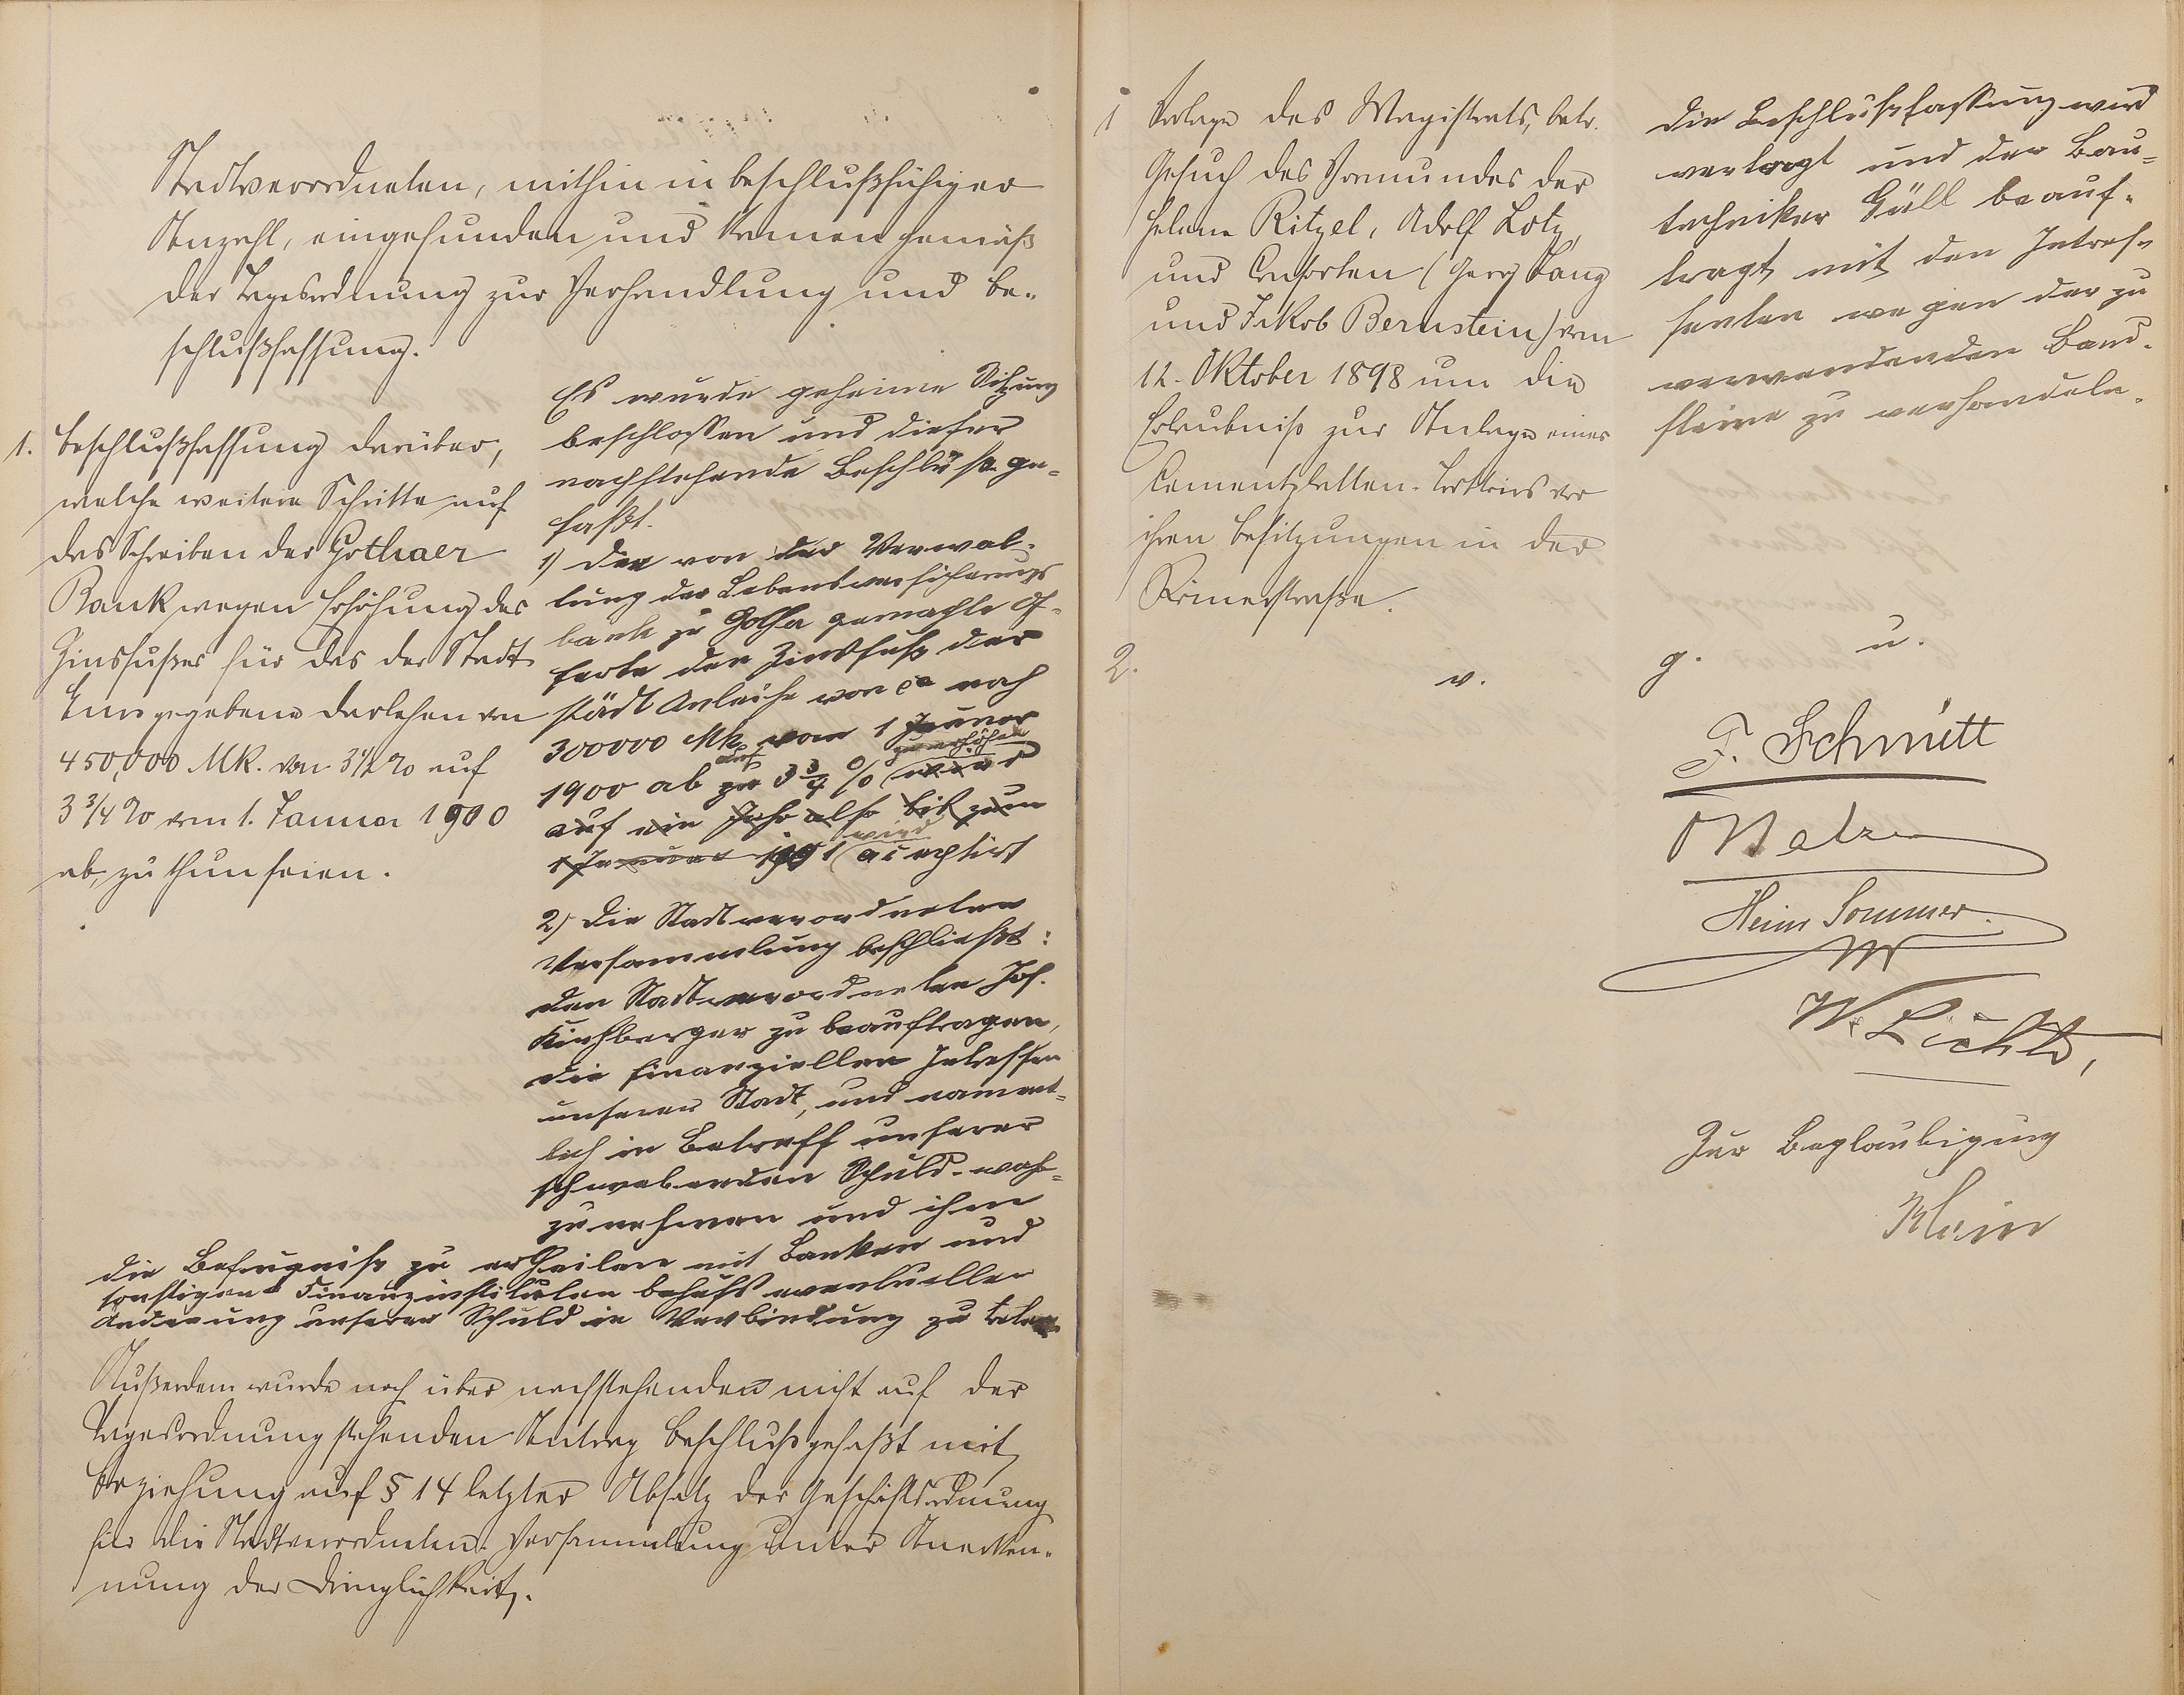 Stadtverordneten, mithin in beschlußfähiger
Anzahl, eingefunden und kamen gemäß
der Tagesordnung zur Verhandlung und Be-
schlußfassung.
1. Beschlußfassung darüber,
welche weitere Schritte auf
das Schreiben der Gothaer
Bank wegen Erhöhung des
Zinsfußes für das der Stadt
gegebene Darlehen von
450,000 Mk. von 3½ % auf
3 3/4 % vom 1. Januar 1900
ab, zu thun seien.
Es wurde geheime Sitzung
beschlossen und dieser
nachstehende Beschluß ge-
faßt.
1) Der von der Verwal-
tung der Lebensversicherungs
bank zu Gotha gemachte Of-
ferte den Zinsfuß der
städt Anleihe von ca noch
300000 Mk vom 1 Januar
1900 ab zu auf 3 3/4 % zu erhöhen wird
auf ein Jahr also bis zum
1 Januar 1901 wird acceptirt
2) Die Stadtverordneten
Versammlung beschließt:
den Stadtverordneten Jos.
Kirchberger zu beauftragen,
die finanziellen Intressen
unserer Stadt, und nament-
lich in Betreff unserer
schwebenden Schuld wahr-
zunehmen und ihm
die Befugniß zu ertheilen mit Banken und
sonstigen Finanzinstituten behufs eventueller
Änderung unserer Schuld in Verbindung zu treten
Außerdem wurde noch über nachstehenden nicht auf der
Tagesordnung stehenden Antrag Beschluß gefaßt mit
Beziehung auf § 14 letzter Absatz der Geschäftsordnung
für die Stadtverordneten-Versammlung unter Anerken-
nung der Dringlichkeit.
1 Vorlage des Magistrats, betr.
Gesuch des Vormundes der
Helene Ritzel, Adolf Lotz,
und Consorten (Georg Lang
und Jakob Bernstein) vom
12. Oktober 1898 um die
Erlaubniß zur Anlage eines
Cementplatten-Trottoirs vor
ihren Besitzungen in der
Römerstraße.
Die Beschlußfassung wird
vertagt und der Bau-
techniker Güll beauf-
tragt mit den Intres-
senten wegen der zu
verwendenden Band-
steine zu verhandeln.
2.
v. g. u.
F. Schmitt
Heinr Sommer
W. Lichte,
Zur Beglaubigung
Klein